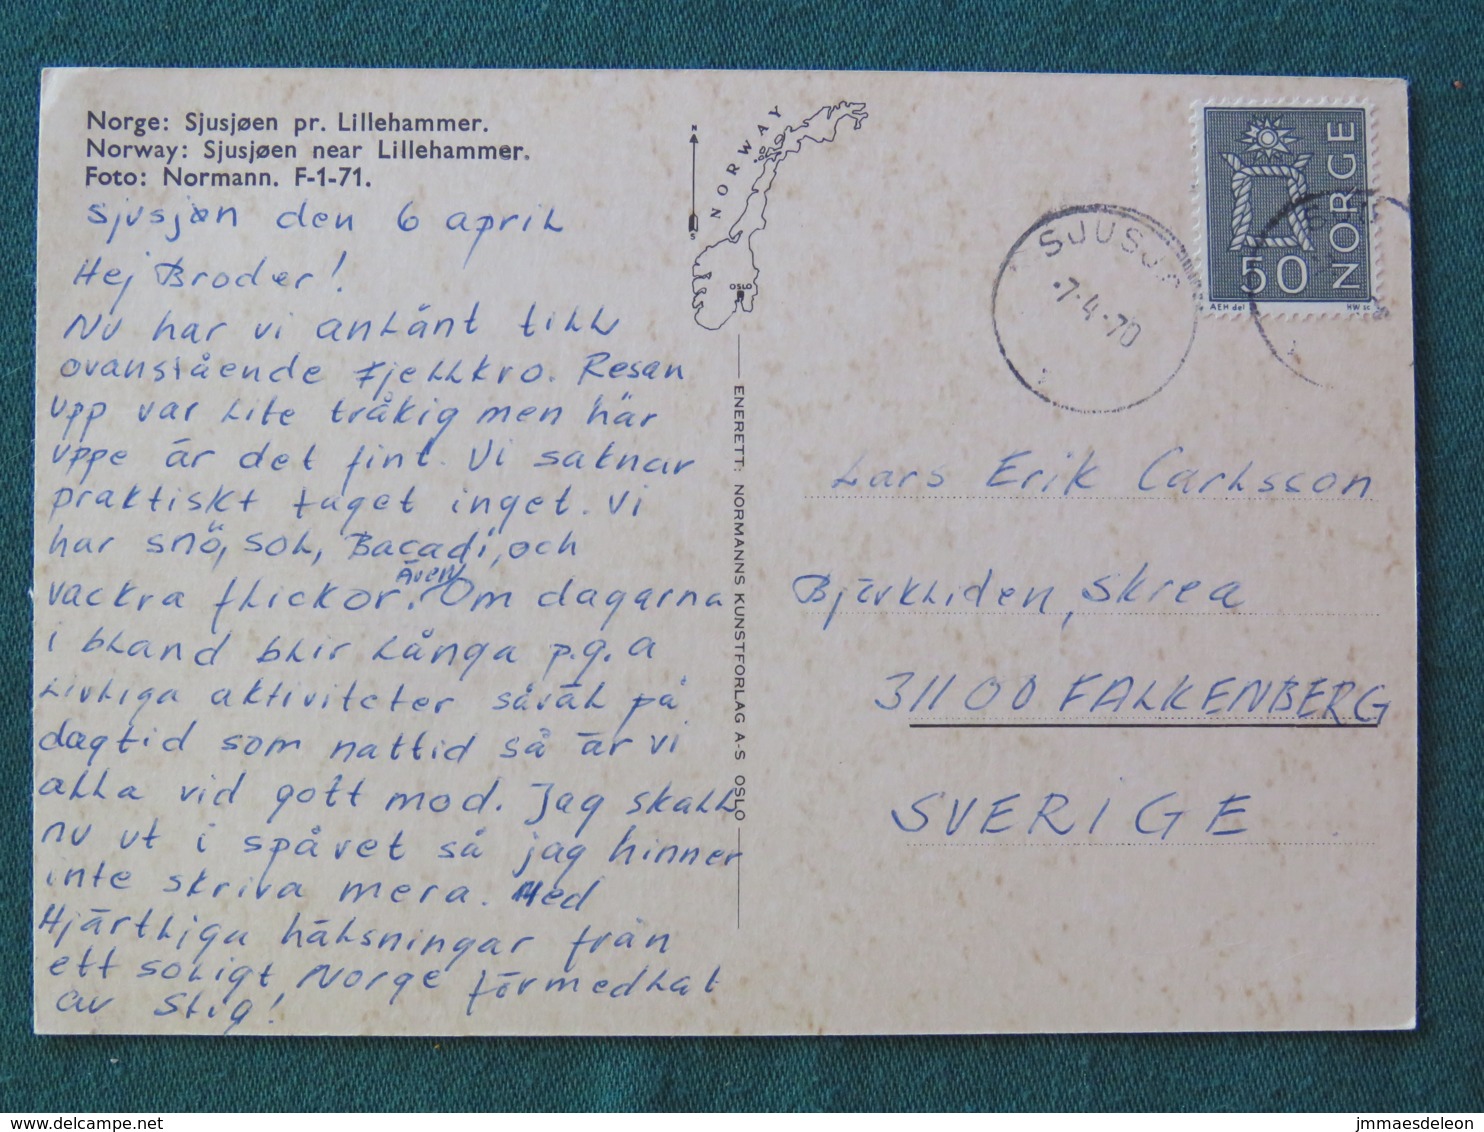 Norge: Sjusjøen pr. Lillehammer.
Norway: Sjusjøen near Lillehammer.
Foto: Normann. F-1-71.
Sjusjøn den 6 april
Hej Broder!
Nu har vi anlänt till
ovanstående Fjellkro. Resan
upp var lite tråkig men här
uppe är det fint. Vi saknar
praktiskt taget inget. Vi
har snö, sol, Bacadi, och
vackra flickor. Även Om dagarna
i bland blir långa p.g.a
livliga aktiviteter såväl på
dagtid som nattid så är vi
alla vid gott mod. Jag skall
nu ut i spåret så jag hinner
inte skriva mera. Med
Hjärtliga hälsningar från
ett soligt Norge förmedlat
av Stig!
NORWAY
N
S
OSLO
ENERETT: NORMANNS KUNSTFORLAG A-S OSLO
NORGE
50
AEH del
HW sc
SJUSJ
7-4-70
Lars Erik Carlsson
Björkliden, Skrea
31100 FALKENBERG
SVERIGE
delcampe.net
jmmaesdeleon